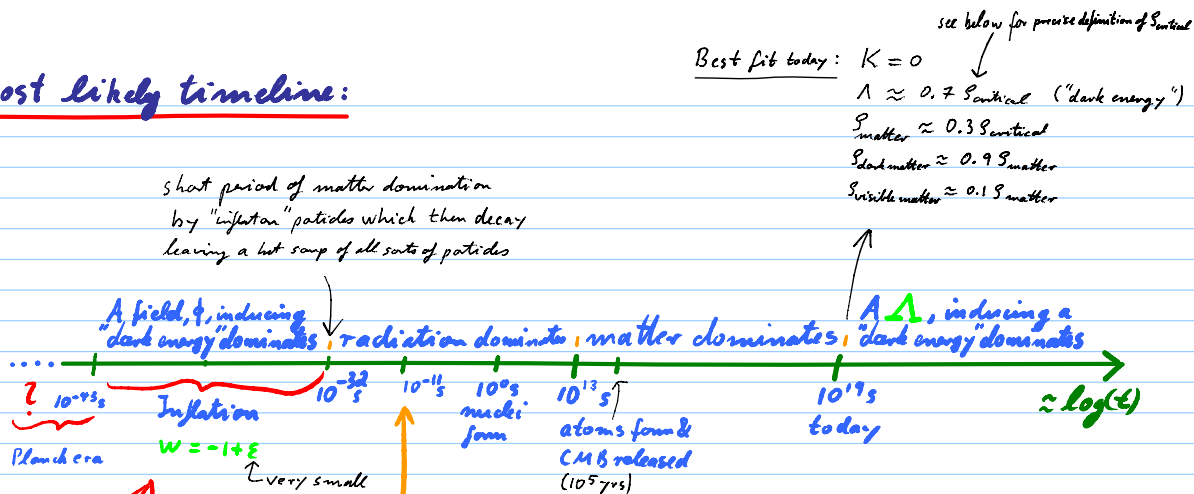 see below for precise definition of ρcritical
Best fit today: K = 0
Λ ≈ 0.7 ρcritical ("dark energy")
ρmatter ≈ 0.3 ρcritical
ρdark matter ≈ 0.9 ρmatter
ρvisible matter ≈ 0.1 ρmatter
ost likely timeline:
short period of matter domination
by "inflaton" paticles which then decay
leaving a hot soup of all sorts of paticles
A field, ϕ, inducing
"dark energy" dominates
radiation dominates
matter dominates
A Λ, inducing a
"dark energy" dominates
?
10⁻⁴³s
Planck era
Inflation
w = -1+ε
very small
10⁻³²s
10⁻¹¹s
10⁰s
nuclei
form
10¹³s
atoms form &
CMB released
(10⁵ yrs)
10¹⁹s
today
≈ log(t)